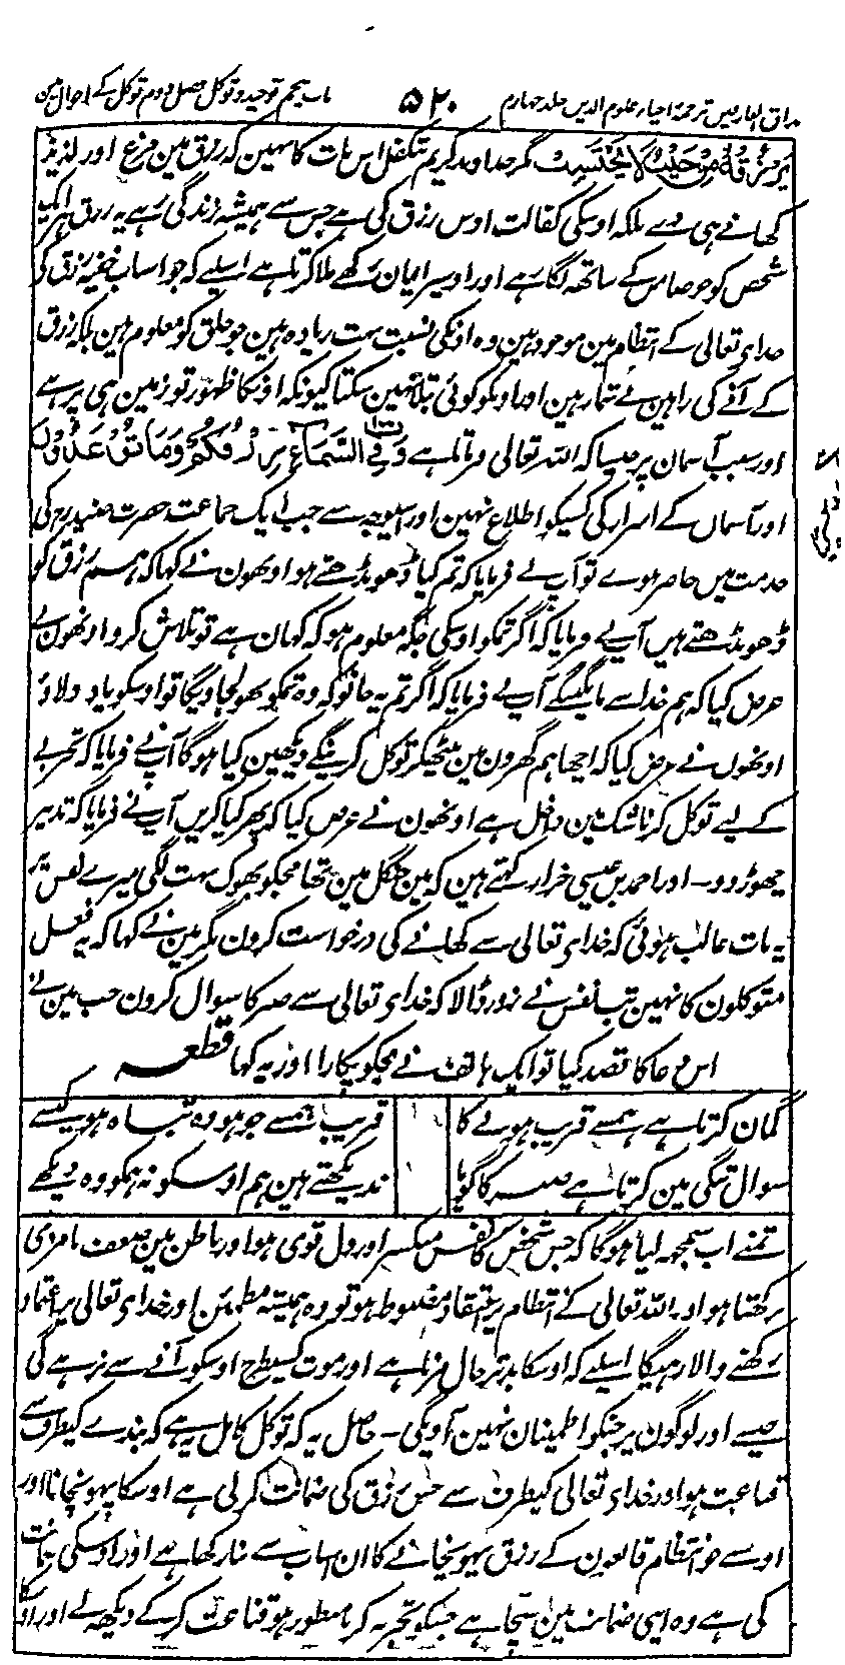 مذاق العارفین ترجمۂ احیاء علوم الدین جلد چہارم ۵۲۰ باب پنجم توحید و توکل فصل دوم توکل کے احوال مین
یرزقہ من حیث لا یحتسب مگر خداوند کریم متکفل اس بات کا نہین کہ رزق مین مرغ اور لذیذ
کھانے ہی دے بلکہ اوسکی کفالت اوس رزق کی ہے جس سے ہمیشہ زندگی رہے یہ رزق ہر ایک
شخص کو جو ضامن کے ساتھ لگا رہے اور اوسپر ایمان رکھے ملا کرتا ہے اسلیے کہ جو اسباب خفیہ رزق کی
خدای تعالی کے انتظام مین موجود ہین وہ اونکی نسبت بہت زیادہ ہین جو خلق کو معلوم ہین بلکہ رزق
کے آنے کی راہین بے شمار ہین اور اونکو کوئی بتلا نہین سکتا کیونکہ اونکا ظہور تو زمین ہی پر ہے
اور سبب آسمان پر جیسا کہ اللہ تعالی فرماتا ہے وَفِی السَّمَاءِ رِزْقُکُمْ وَمَا تُوْعَدُوْنَ
اور آسمان کے اسرار کی کسیکو اطلاع نہین اور اسیوجہ سے جب ایک جماعت حضرت جنید رح کی
خدمت مین حاضر ہوے تو آپ نے فرمایا کہ تم کیا ڈھونڈھتے ہو اونھون نے کہا کہ ہم رزق کو
ڈھونڈھتے ہیں آپنے فرمایا کہ اگر تمکو اوسکی جگہ معلوم ہو کہ کہان ہے تو تلاش کرو اونھون نے
عرض کیا کہ ہم خدا سے مانگینگے آپ نے فرمایا کہ اگر تم یہ جانو کہ وہ تمکو بھولجاویگا تو اوسکو یاد دلاؤ
اونھوں نے عرض کیا کہ اچھا ہم گھرون مین بیٹھیکر توکل کرینگے دیکھین کیا ہوگا آپ نے فرمایا کہ تجربے
کے لیے توکل کرنا شک مین داخل ہے اونھون نے عرض کیا کہ پھر کیا کریں آپ نے فرمایا کہ تدبیر
چھوڑ دو۔ اور احمد بن عیسی خراز کہتے ہین کہ مین جنگل مین تھا مجکو بھوک بہت لگی میرے نفس پر
یہ بات غالب ہوئی کہ خدای تعالی سے کھانے کی درخواست کرون مگر مین نے کہا کہ یہ فعل
متوکلون کا نہین تب نفس نے زور ڈالا کہ خدای تعالی سے صبر کا سوال کرون جب مین نے
اس دعا کا قصد کیا تو ایک ہاتف نے مجکو پکارا اور یہ کہا قطعہ
گمان کرتا ہے ہمسے قریب ہونے کا قریب ہمسے جو ہو وہ تباہ ہو کیسے
سوال تنگی مین کرتا ہے صبر کا گویا ندیکھتے ہین ہم اوسکو نہ ہمکو وہ دیکھے
تمنے اب سمجھ لیا ہوگا کہ جس شخص کا نفس منکسر اور دل قوی ہو اور باطن مین ضعف نامردی
رکھتا ہو اور اللہ تعالی کے انتظام پر اعتقاد مضبوط ہو تو وہ ہمیشہ مطمئن اور خدای تعالی پر اعتماد
رکھنے والا رہیگا اسلیے کہ اوسکا بدتر حال مرنا ہے اور موت کسیطرح اوسکو آنے سے نرہے گی
جیسے اور لوگون پر جنکو اطمینان نہین آویگی۔ حاصل یہ کہ توکل کامل یہ ہے کہ بندے کیطرف سے
قناعت ہو اور خدای تعالی کیطرف سے جس رزق کی ضمانت کر لی ہے اوسکا پہونچانا اور
اوسنے جو انتظام قانعون کے رزق پہونچانے کا ان اسباب سے بنا رکھا ہے اور اوسکی ضمانت
کی ہے وہ اپنی ضمانت مین سچا ہے جسکو تجربہ کرنا منظور ہو قناعت کر کے دیکھ لے اور اوسکا